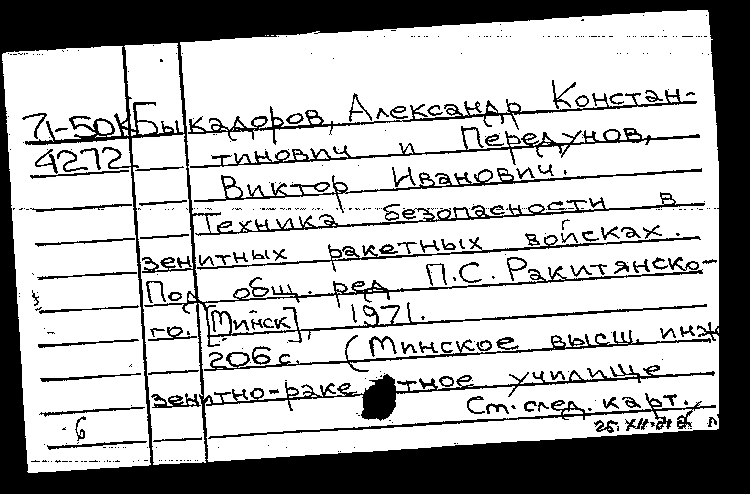 71-50К Быкадоров, Александр Констан-
4272 тинович и Передунов,
Виктор Иванович.
Техника безопасности в
зенитных ракетных войсках.
Под общ. ред. П.С. Ракитянско-
го. [Минск], 1971.
206 с. (Минское высш. инж
зенитно-раке тное училище
См. след. карт.
6